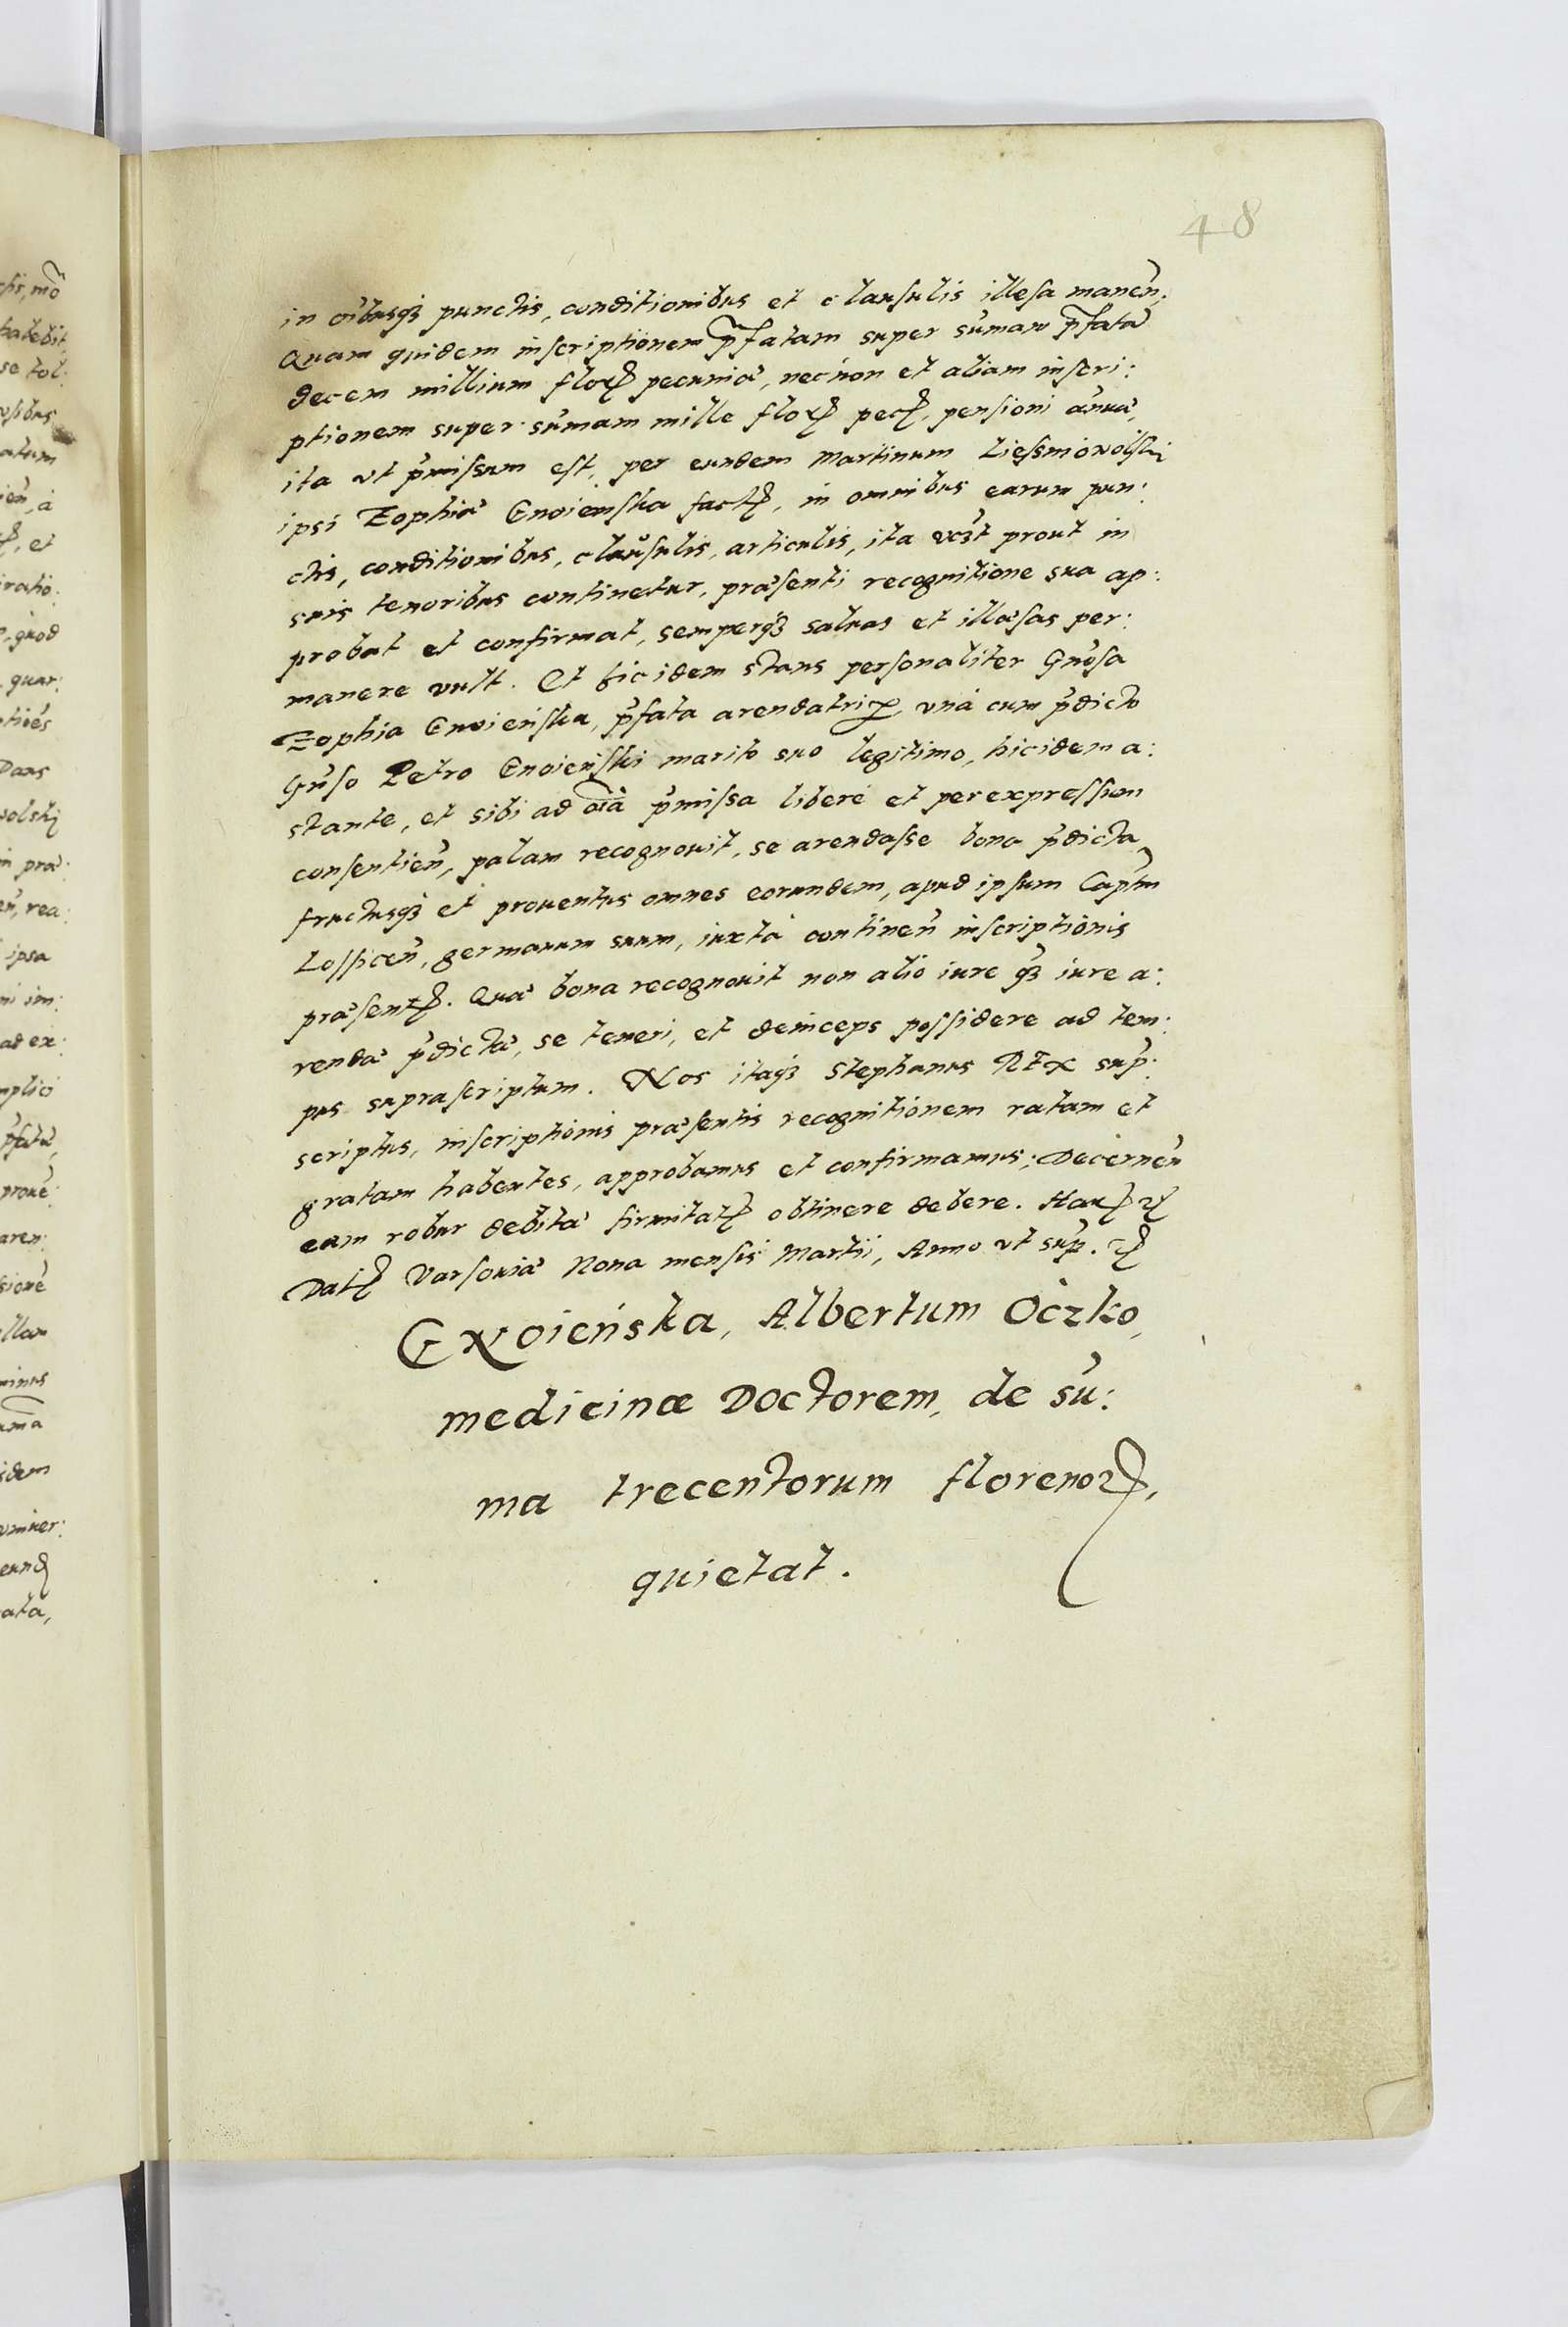 48
in oibusq3 punctis, conditionibus et clausulis illesa manen.
Quam quidem inscriptionem pfatam super sumam pfatæ
decem millium flor pecuniæ, necnon et aliam inscri:
ptionem super sumam mille flor pec, pensioni anuæ,
ita ut pmissum est, per eundem Martinum
ipsi Zophiæ Gnoienska fact, in omnibus earum pun:
ctis, conditionibus, clausulis, articulis, ita vczt prout in
suis tenoribus continetur, præsenti recognitione sua ap:
probat et confirmat, semperq3 saluas et illæsas per:
manere vult. Et hic idem stans personaliter Gnosa
Zophia Gnoieńska, pfata arendatrix, vná cum pdicto
Gnso Petro Gnoieński marito suo legitimo, hic idem a:
stante, et sibi ad oia pmissa liberè et per expressum
consentien, palam recognouit, se arendasse bona pdicta,
fructusq3 et prouentus omnes eorundem, apud ipsum Captm
Lossicen, germanum suum, iuxtà continen inscriptionis
præsent. Quæ bona recognouit non alio iure q3 iure a:
rendæ pdictæ, se teneri, et deinceps possidere ad tem:
pus suprascriptum. Nos itaq3 Stephanus REX sup:
scriptus, inscriptionis præsentis recognitionem ratam et
gratam habentes, approbamus et confirmamus; Decernen
eam robur debitæ firmitat obtinere debere. Har
Dat Varsouiæ Nona mensis Martii, Anno ut sup.
GNoieńska, Albertum Oczko,
medicinæ Doctorem, de su:
ma trecentorum florenor,
quietat.